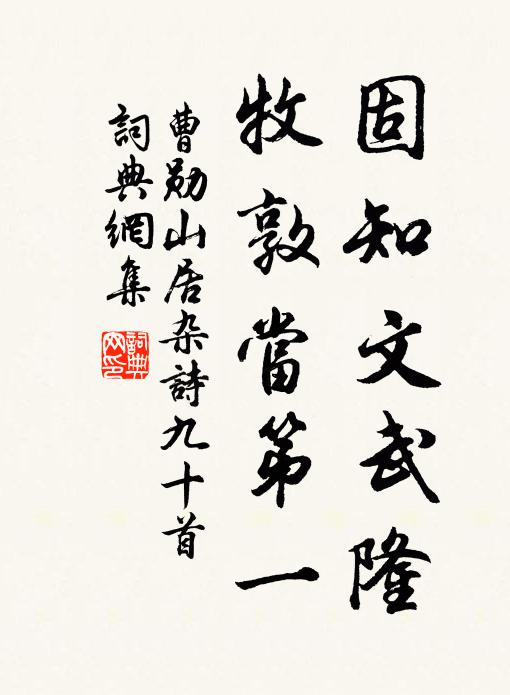 固知文武隆
牧敦當第一
曹勛山居杂詩九十首
詞典網集
詞典網印